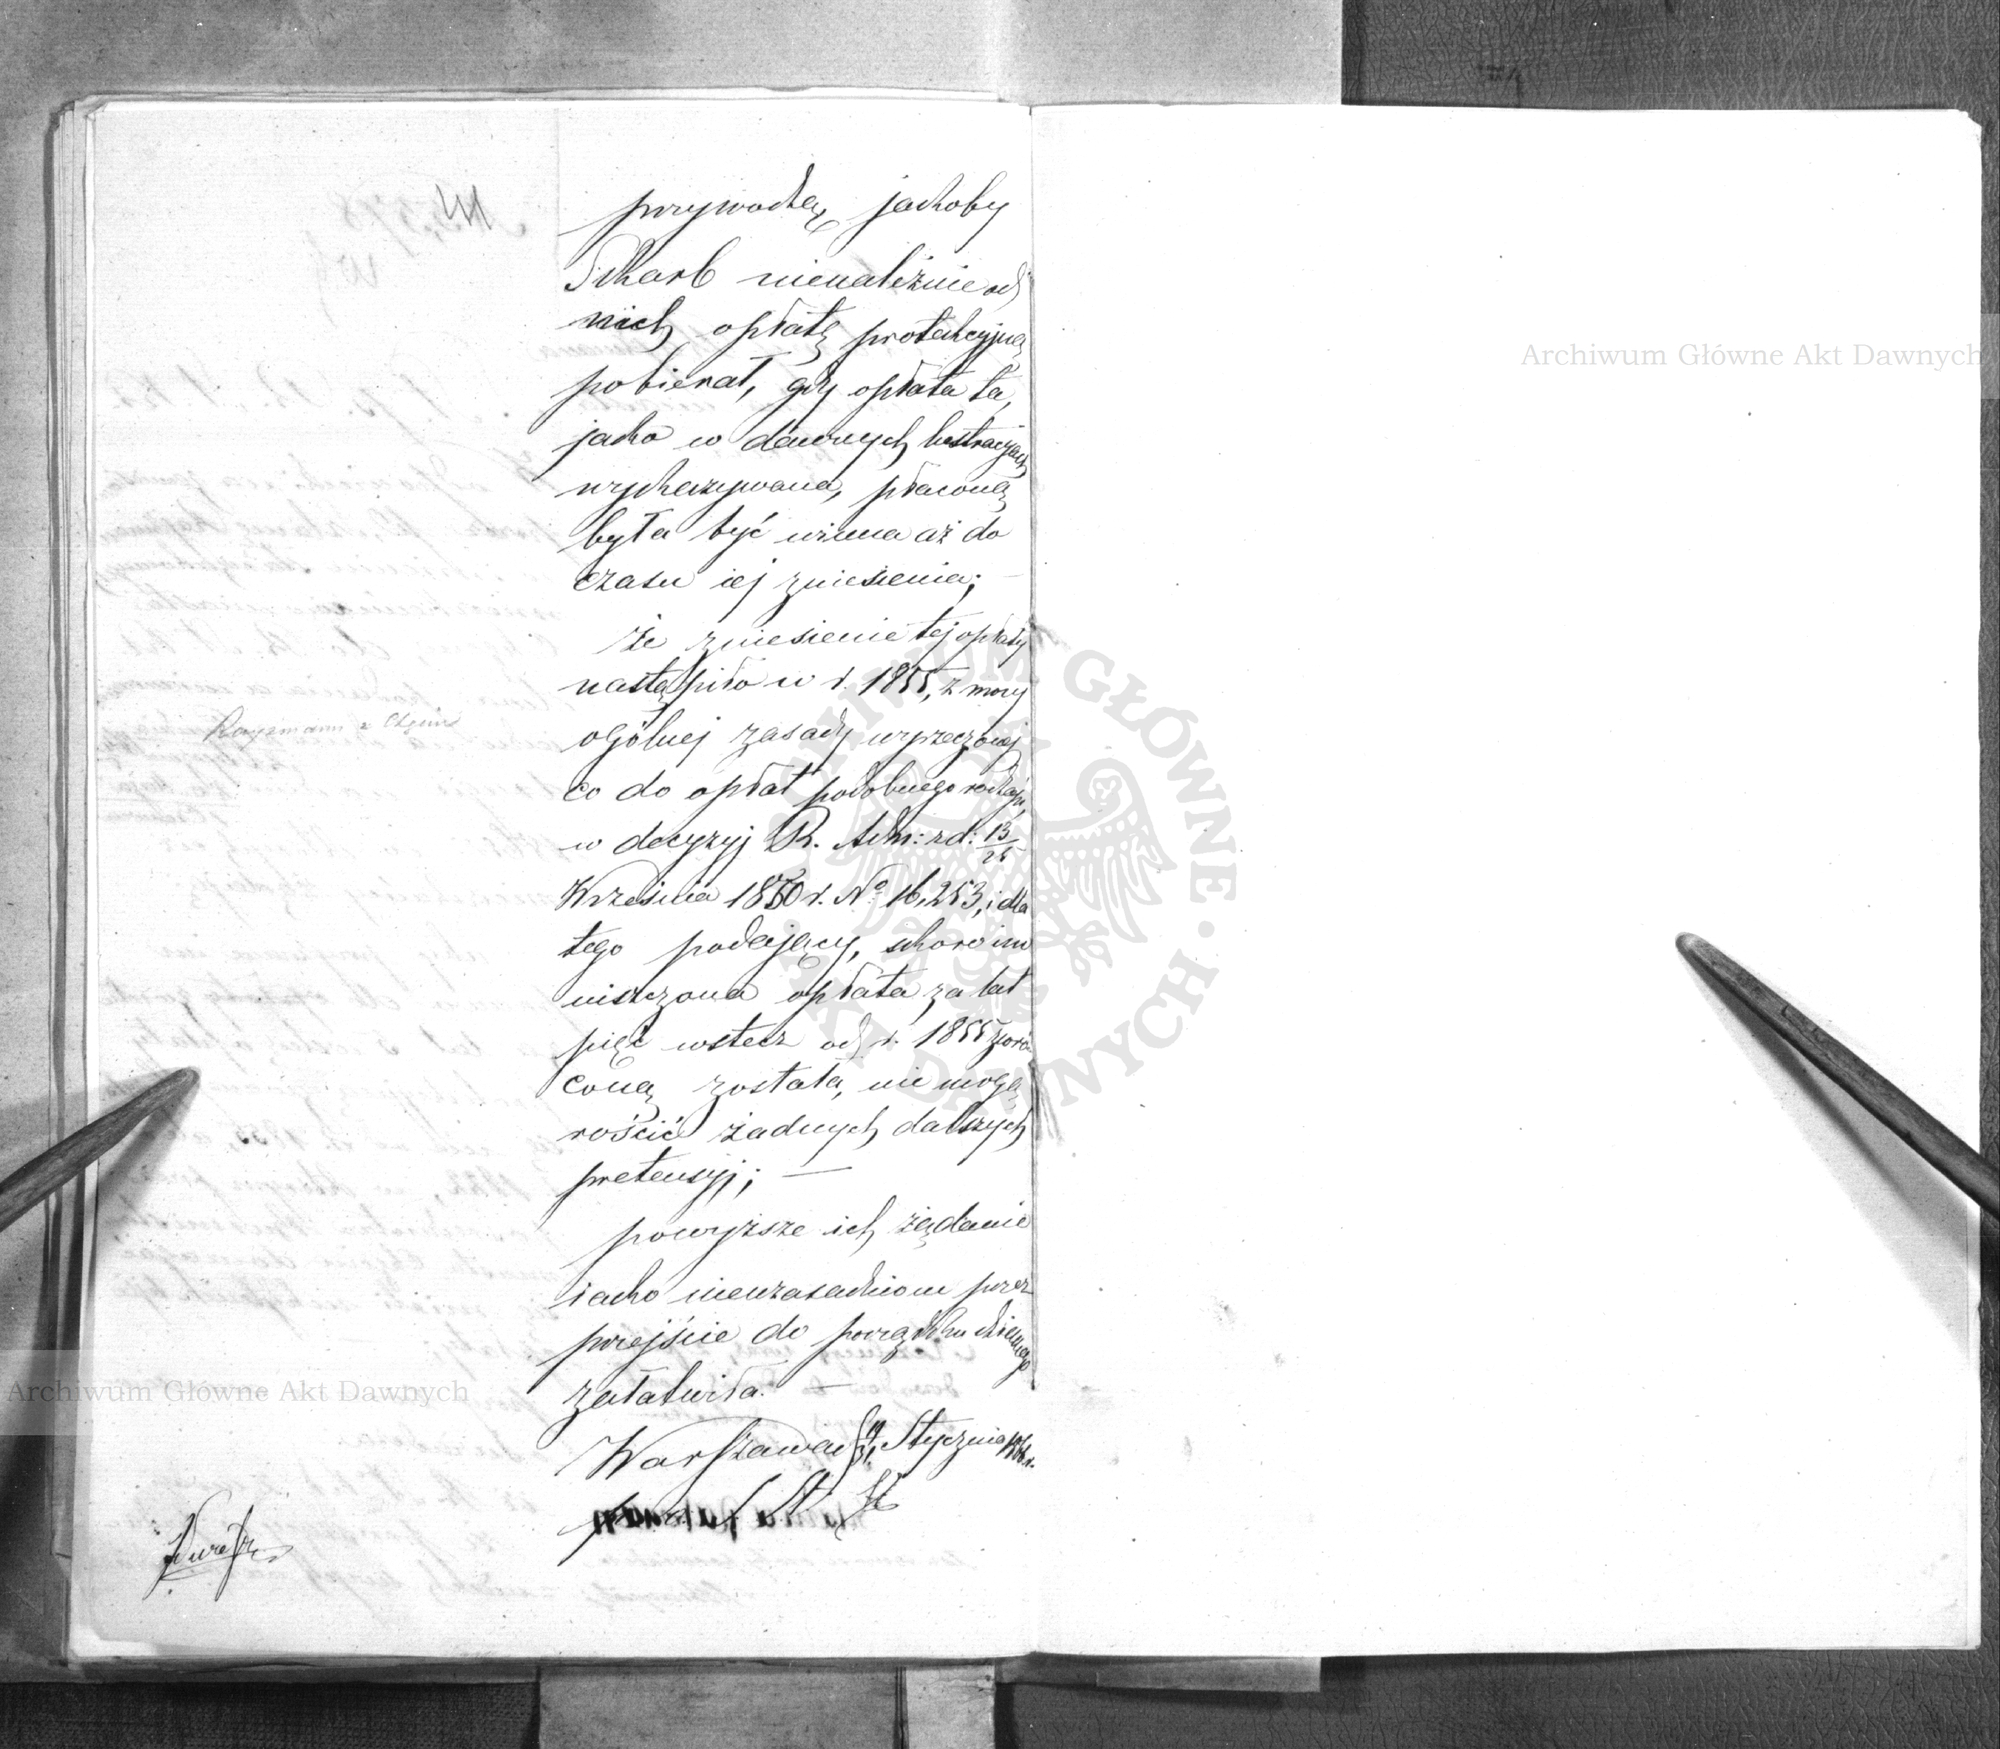 przywodzą, jakoby
Skarb nienależnie od
nich opłatę protekcyjną
pobierał, gdy opłata ta,
jako w dawnych lustracyjach
wykazywana, płaconą
była być winna aż do
czasu iej zniesienia; —
że zniesienie tej opłaty
nastąpiło w r. 1855, z mocy
ogólnej zasady wyrzeczonej
co do opłat podobnego rodzaju,
w decyzyj R. Adm: z d: 13/25
Września 1850 r. No 16,253, i dla
tego podający, skoro im
uiszczona opłata za lat
pięć wstecz od r. 1855 zwró-
coną została, nie mogą
rościć żadnych dalszych
pretensyj; —
powyższe ich żądanie
iako nieuzasadnione przez
przejście do porządku dziennego
załatwiła. —
Warszawa Stycznia
Archiwum Główne Akt Dawnych
Archiwum Główne Akt Dawnych
ARCHIWUM GŁÓWNE · AKT DAWNYCH ·